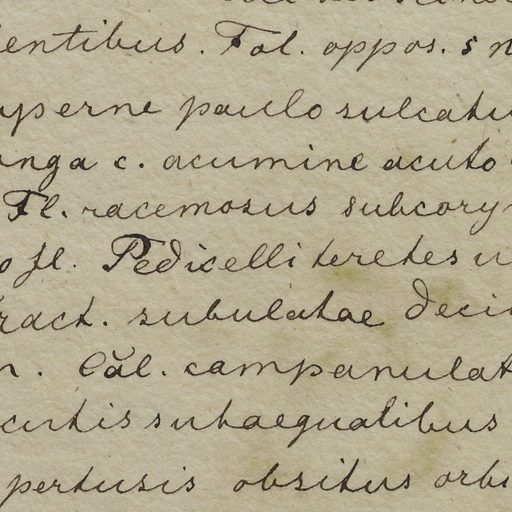 entibus. Fol. oppos. s
perne paulo sulcatu
nga c. acumine acuto
Fl. racemosus subcory
fl. Pedicelli teretes u
ract. subulatae deci
n. Căl. campanulat
curtis subaequalibus
pertusis obsitus orbi